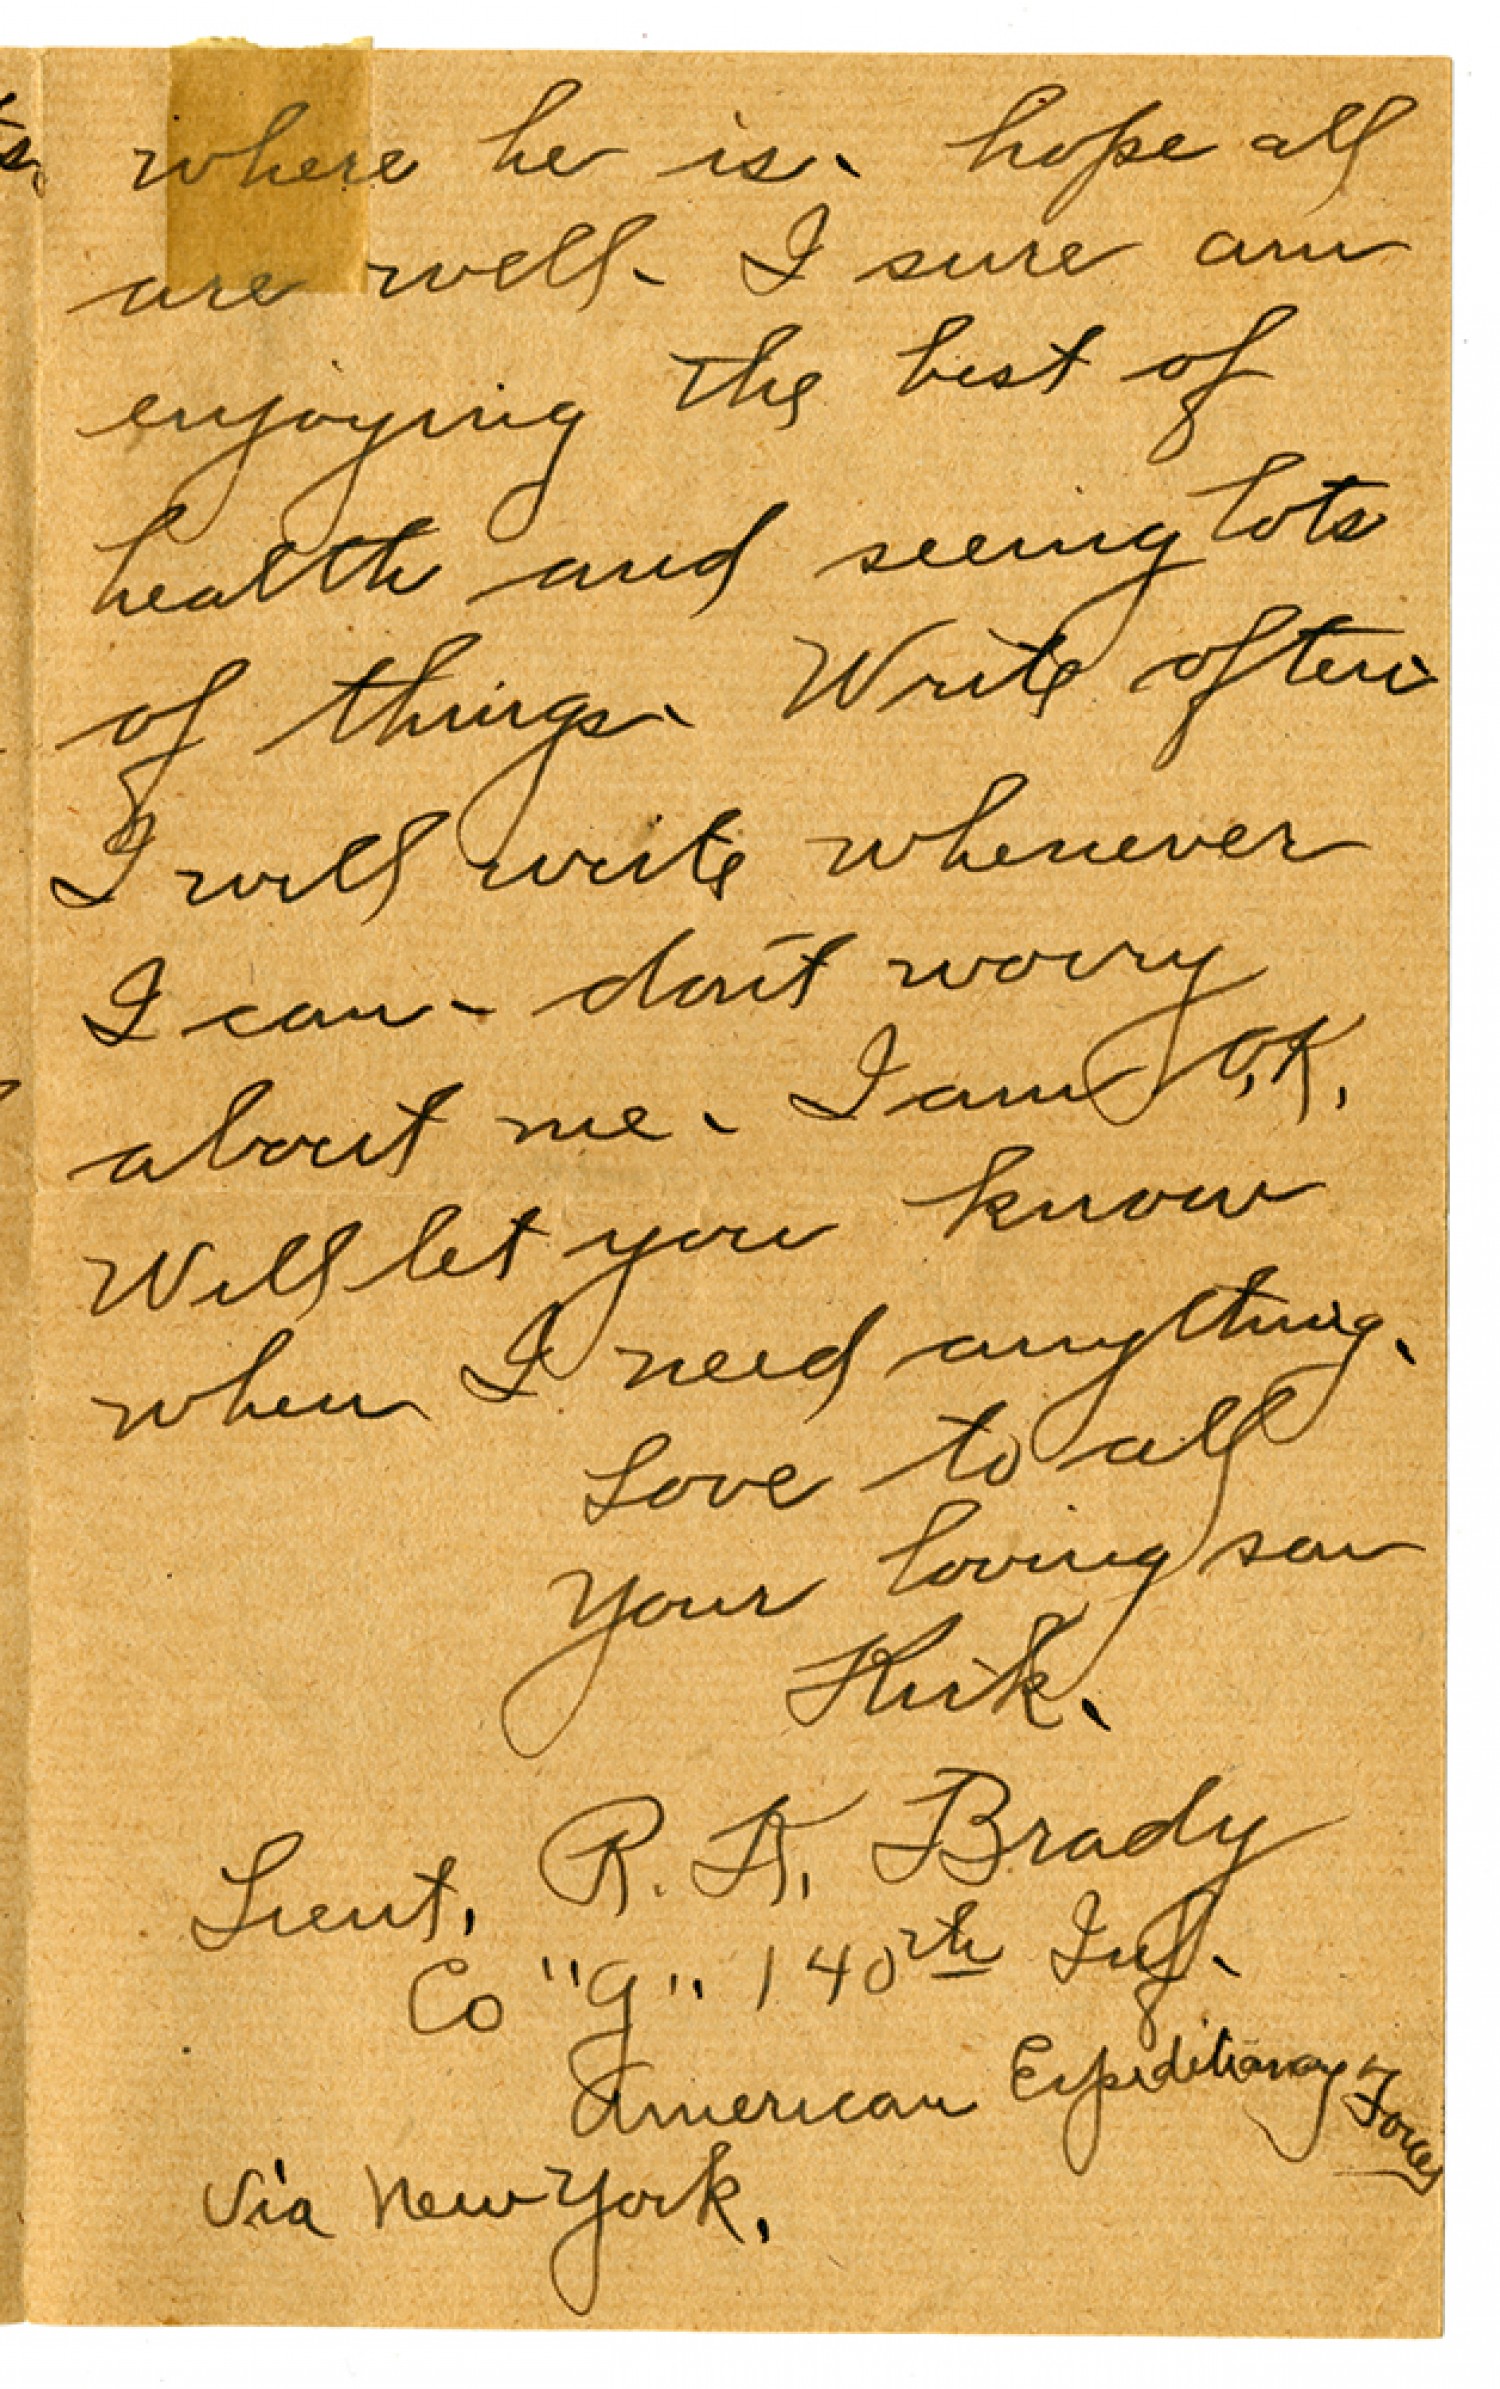 where he is. hope all
are well. I sure am
enjoying the best of
health and seeing lots
of things. Write often
I will write whenever
I can. don't worry
about me. I am O.K.
Will let you know
when I need anything.
Love to all
Your loving son
Kirk.
Lieut. R. K. Brady
Co "G" 140th Inf.
American Expeditionary Forces
Via New York.